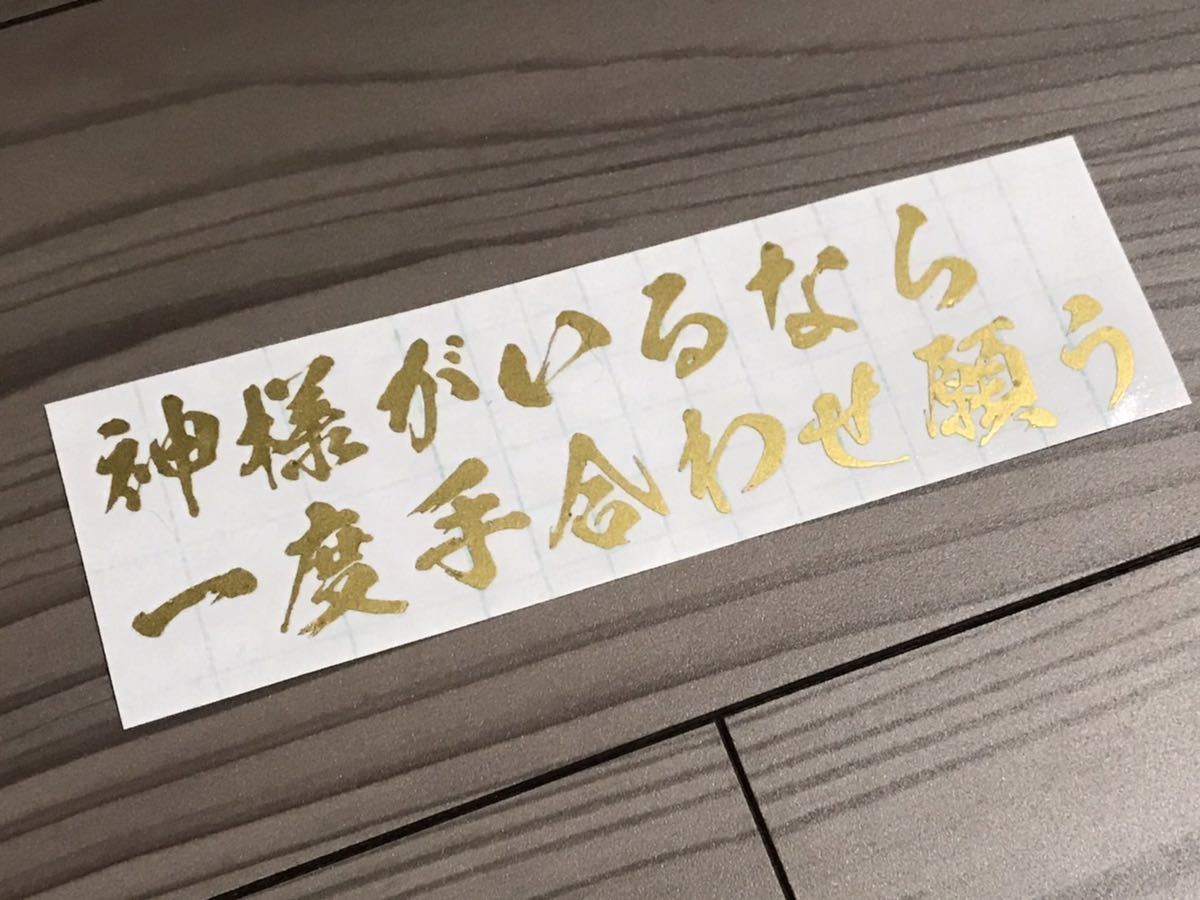 神様がいるなら
一度手合わせ願う